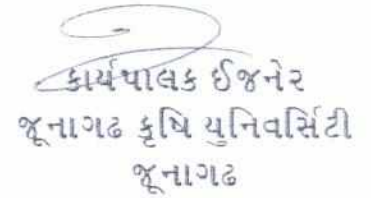 કાર્યપાલક ઈજનેર
જૂનાગઢ કૃષિ યુનિવર્સિટી
જૂનાગઢ